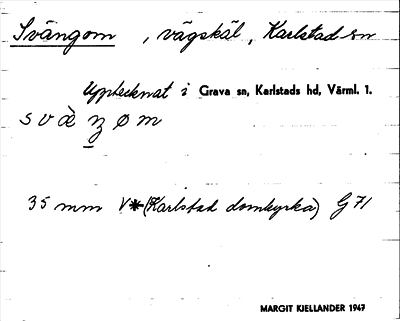 Svängom, vägskäl, Karlstad sn
Upptecknat i Grava sn, Karlstads hd, Värml. 1.
s v æ̀ ŋ ø m
35 mm V * (Karlstad domkyrka) G 71
MARGIT KJELLANDER 1947